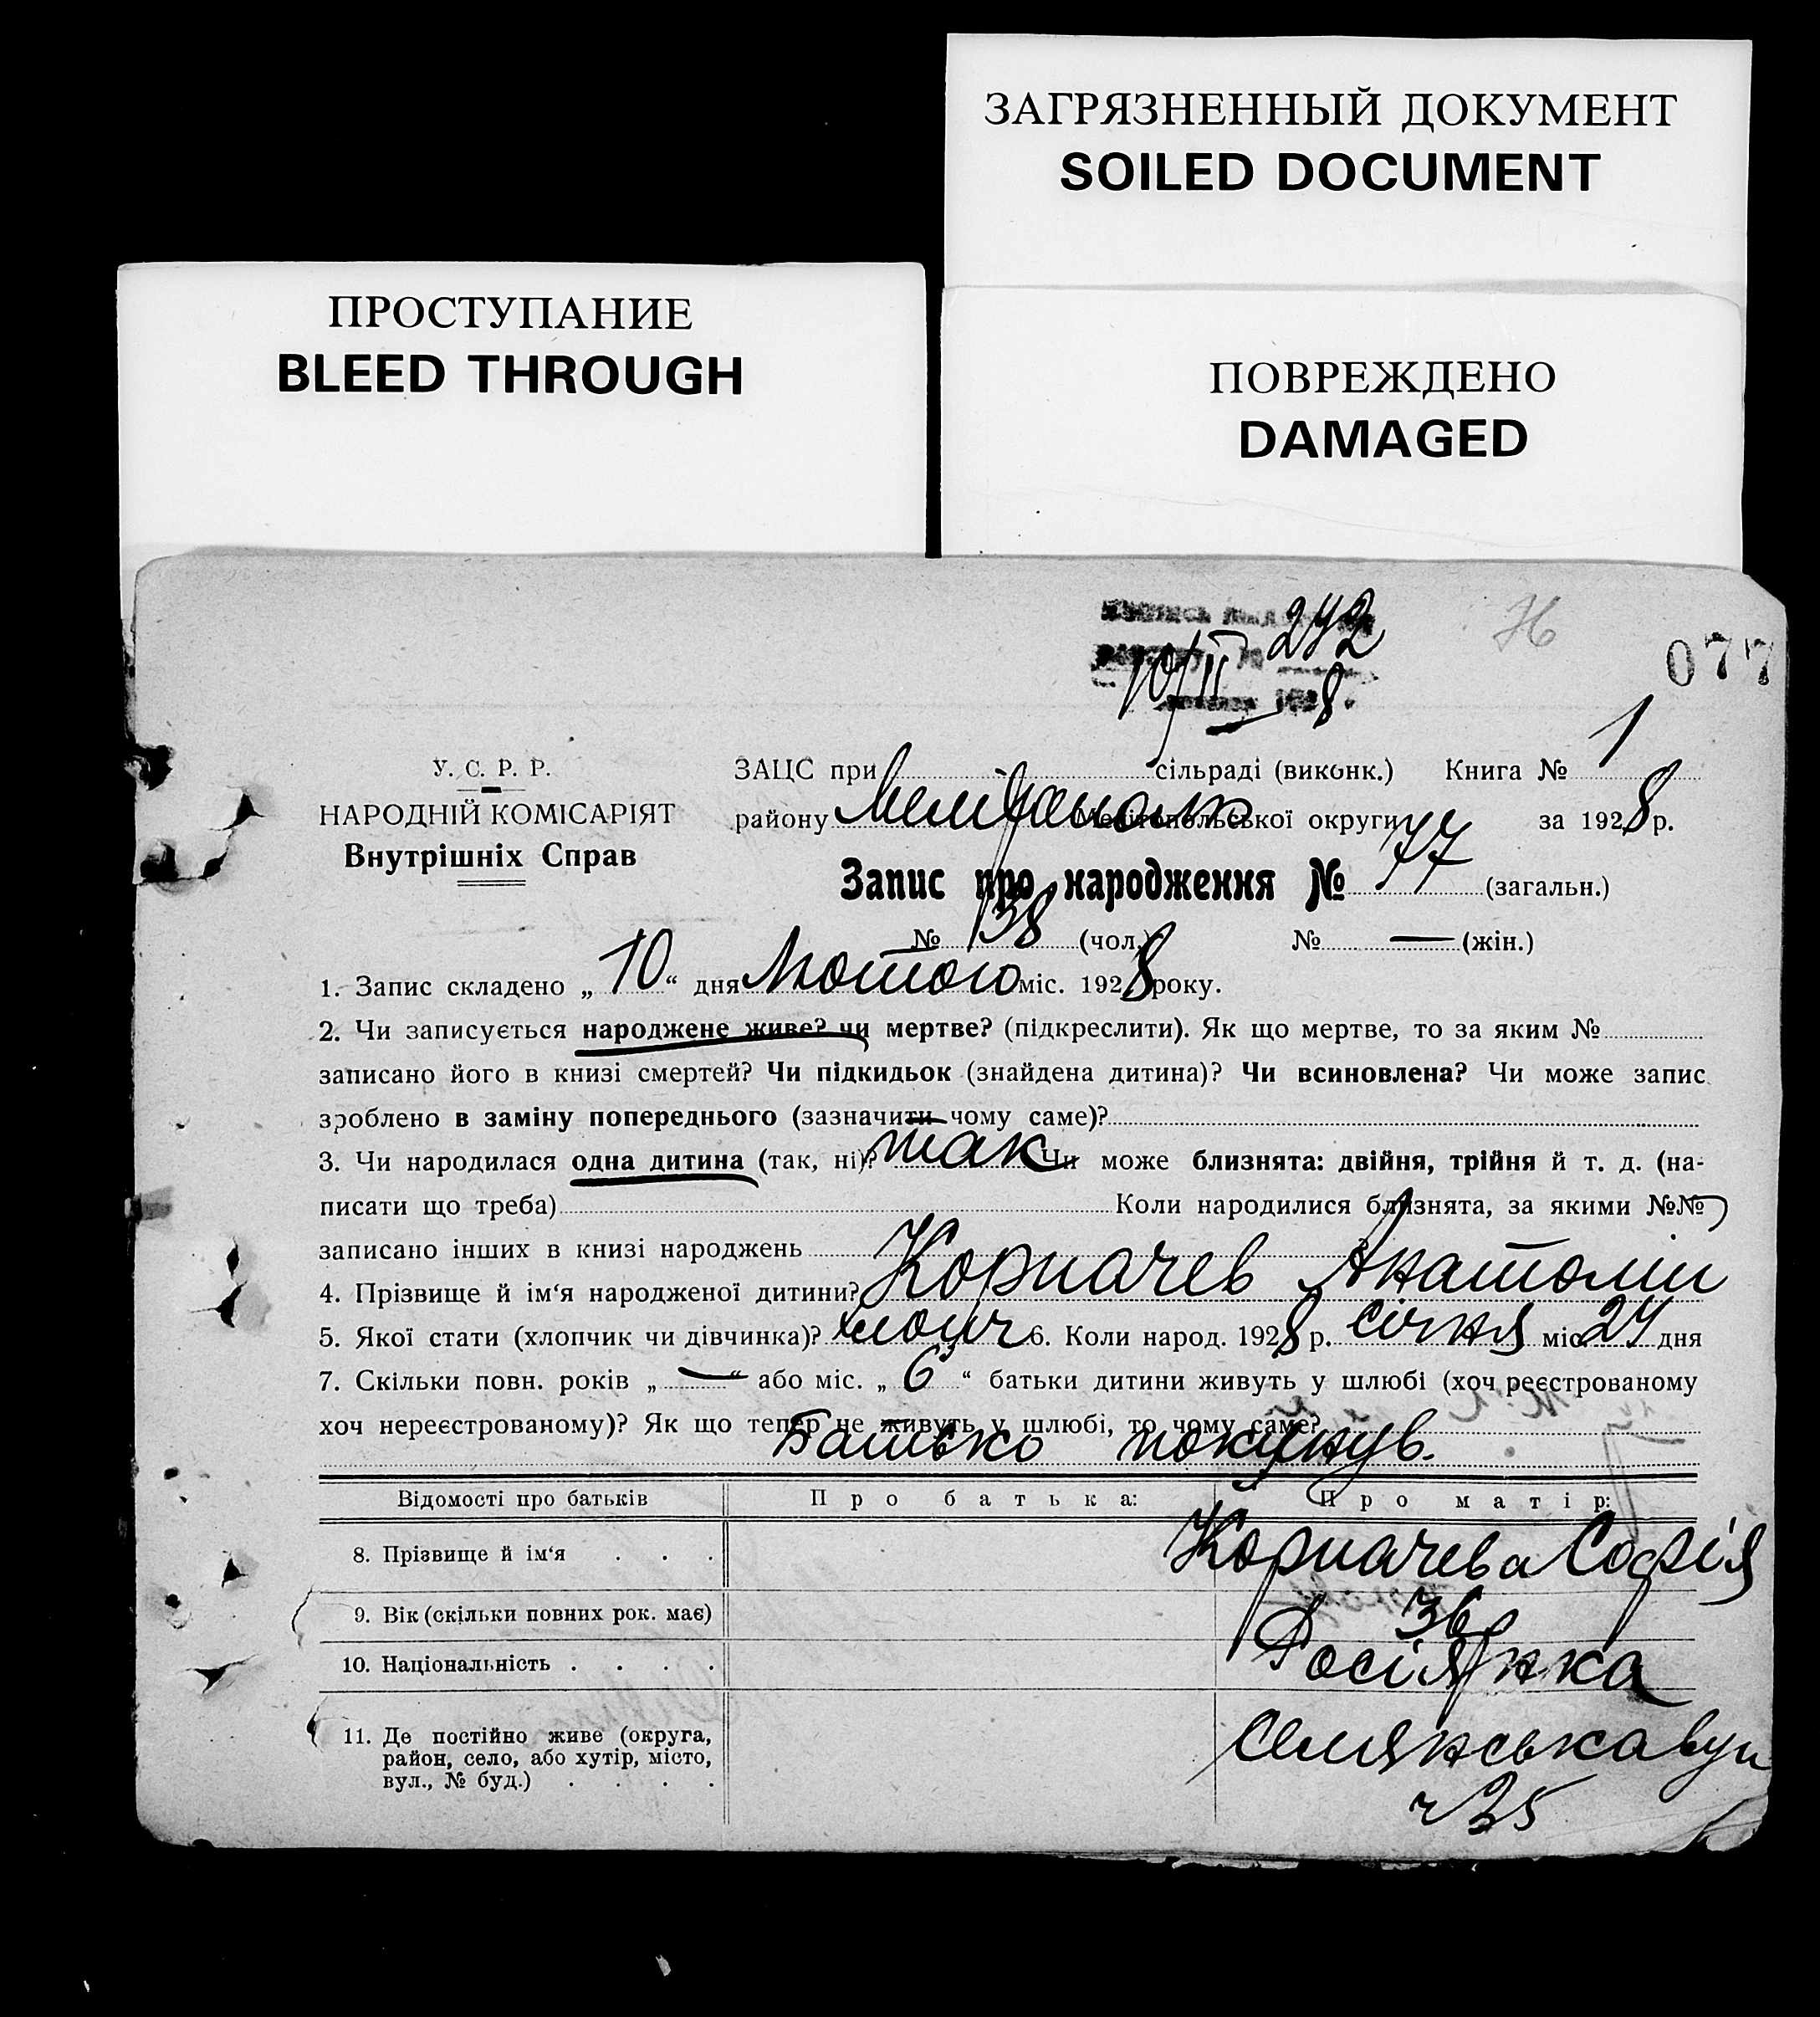 ЗАГРЯЗНЕННЫЙ ДОКУМЕНТ
SOILED DOCUMENT
ПРОСТУПАНИЕ
BLEED THROUGH
ПОВРЕЖДЕНО
DAMAGED
272
10/II 8.
76
077
У. С. Р. Р.
НАРОДНІЙ КОМІСАРІЯТ
Внутрішніх Справ
ЗАЦС при сільраді (виконк.) Книга № 1
району Мелітополь Мелітопольської округи за 1928 р.
Запис про народження № 77 (загальн.)
№ 38 (чол.) № — (жін.)
1. Запис складено „ 10 “ дня Лютого міс. 1928 року.
2. Чи записується народжене живе? чи мертве? (підкреслити). Як що мертве, то за яким №
записано його в книзі смертей? Чи підкидьок (знайдена дитина)? Чи всиновлена? Чи може запис
зроблено в заміну попереднього (зазначити чому саме)?
3. Чи народилася одна дитина (так, ні)? так Чи може близнята: двійня, трійня й т. д. (на-
писати що треба) Коли народилися близнята, за якими №№
записано інших в книзі народжень
4. Прізвище й ім‘я народженої дитини? Корначев Анатолій
5. Якої стати (хлопчик чи дівчинка)? хлопч 6. Коли народ. 1928 р. січня міс. 24 дня
7. Скільки повн. років „ — “ або міс. „ 6 “ батьки дитини живуть у шлюбі (хоч реєстрованому
хоч нереєстрованому)? Як що тепер не живуть у шлюбі, то чому саме?
Батько покинув.
Відомості про батьків Про батька: Про матір:
8. Прізвище й ім‘я . . . Корначева Софія
9. Вік (скільки повних рок. має) 36
10. Національність . . . . Росіянка
11. Де постійно живе (округа,
район, село, або хутір, місто,
вул., № буд.) . . . .
Селянська вул
ч 35